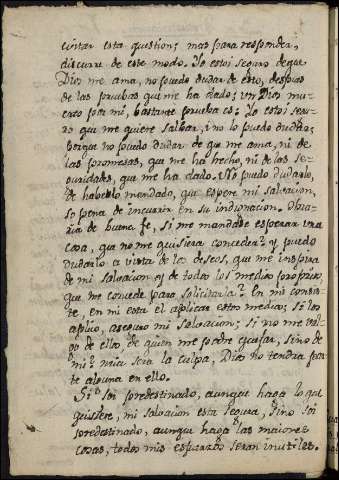 cintar esta question; mas para responder,
discurre de este modo. Yo estoi seguro de que
Dios me ama, no puedo dudar de esto, despues
de las pruebas que me ha dado; un Dios mu-
erto por mi, bastante prueba es: Yo estoi segu-
ro que me quiere salbar, i no lo puedo dudar;
porque no puedo dudar de que me ama, ni de
las promesas, que me ha hecho, ni de las se-
guridades, que me ha dado. No puedo dudarlo,
de haberlo mandado, que espere mi salvacion,
so pena de incurrir en su indignacion. Obra-
ria de buena fe, si me mandase esperar una
cosa, que no me quisiera conceder? y puedo
dudarlo a vista de los deseos, que me inspira
de mi salvacion, y de todos los medios proprios,
que me concede para solicitarla? En mi consis-
te, en mi esta el aplicar estos medios; si los
aplico, aseguro mi salvacion; si no me val-
go de ello, de quien me podre quejar, sino de
mi? mia sera la culpa, Dios no tendra par-
te alguna en ello.
Si soi predestinado, aunque haga lo que
quisiere, mi salvacion esta segura, sino soi
predestinado, aunque haga las maiores
cosas, todos mis esfuerzos seran inutiles.